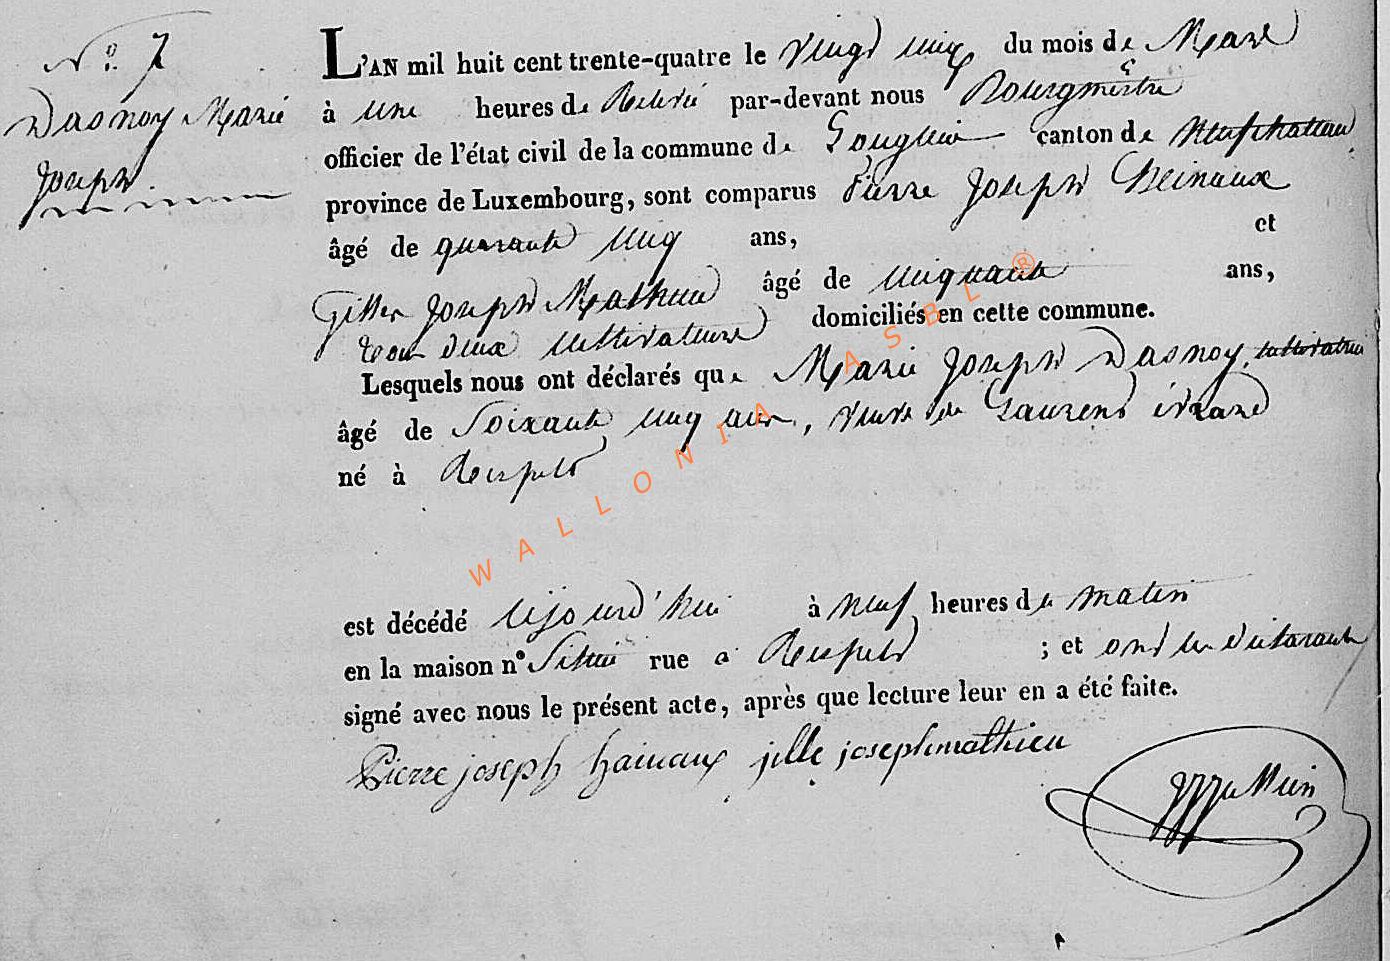 N° 7
Dasnoy Marie
Joseph.
L'AN mil huit cent trente-quatre le vingt cinq du mois de Mars
à une heures de Relevée par-devant nous Bourgmestre
officier de l'état civil de la commune de Longlier canton de Neufchateau
province de Luxembourg, sont comparus Pierre Joseph Heinaux
âgé de quarante cinq ans, et
Gilles Joseph Mathieu âgé de cinquante ans,
tous deux cultivateurs domiciliés en cette commune.
Lesquels nous ont déclarés que Marie Joseph Dasnoy, cultivatrice
âgé de Soixante cinq ans, veuve de Laurend
né à Respelt
est décédé cejourd'hui à neuf heures de matin
en la maison n° Sithué rue à Respelt ; et ont les déclarants
signé avec nous le présent acte, après que lecture leur en a été faite.
Pierre joseph hainaux jille joseph mathieu
WALLONIA ASBL ®